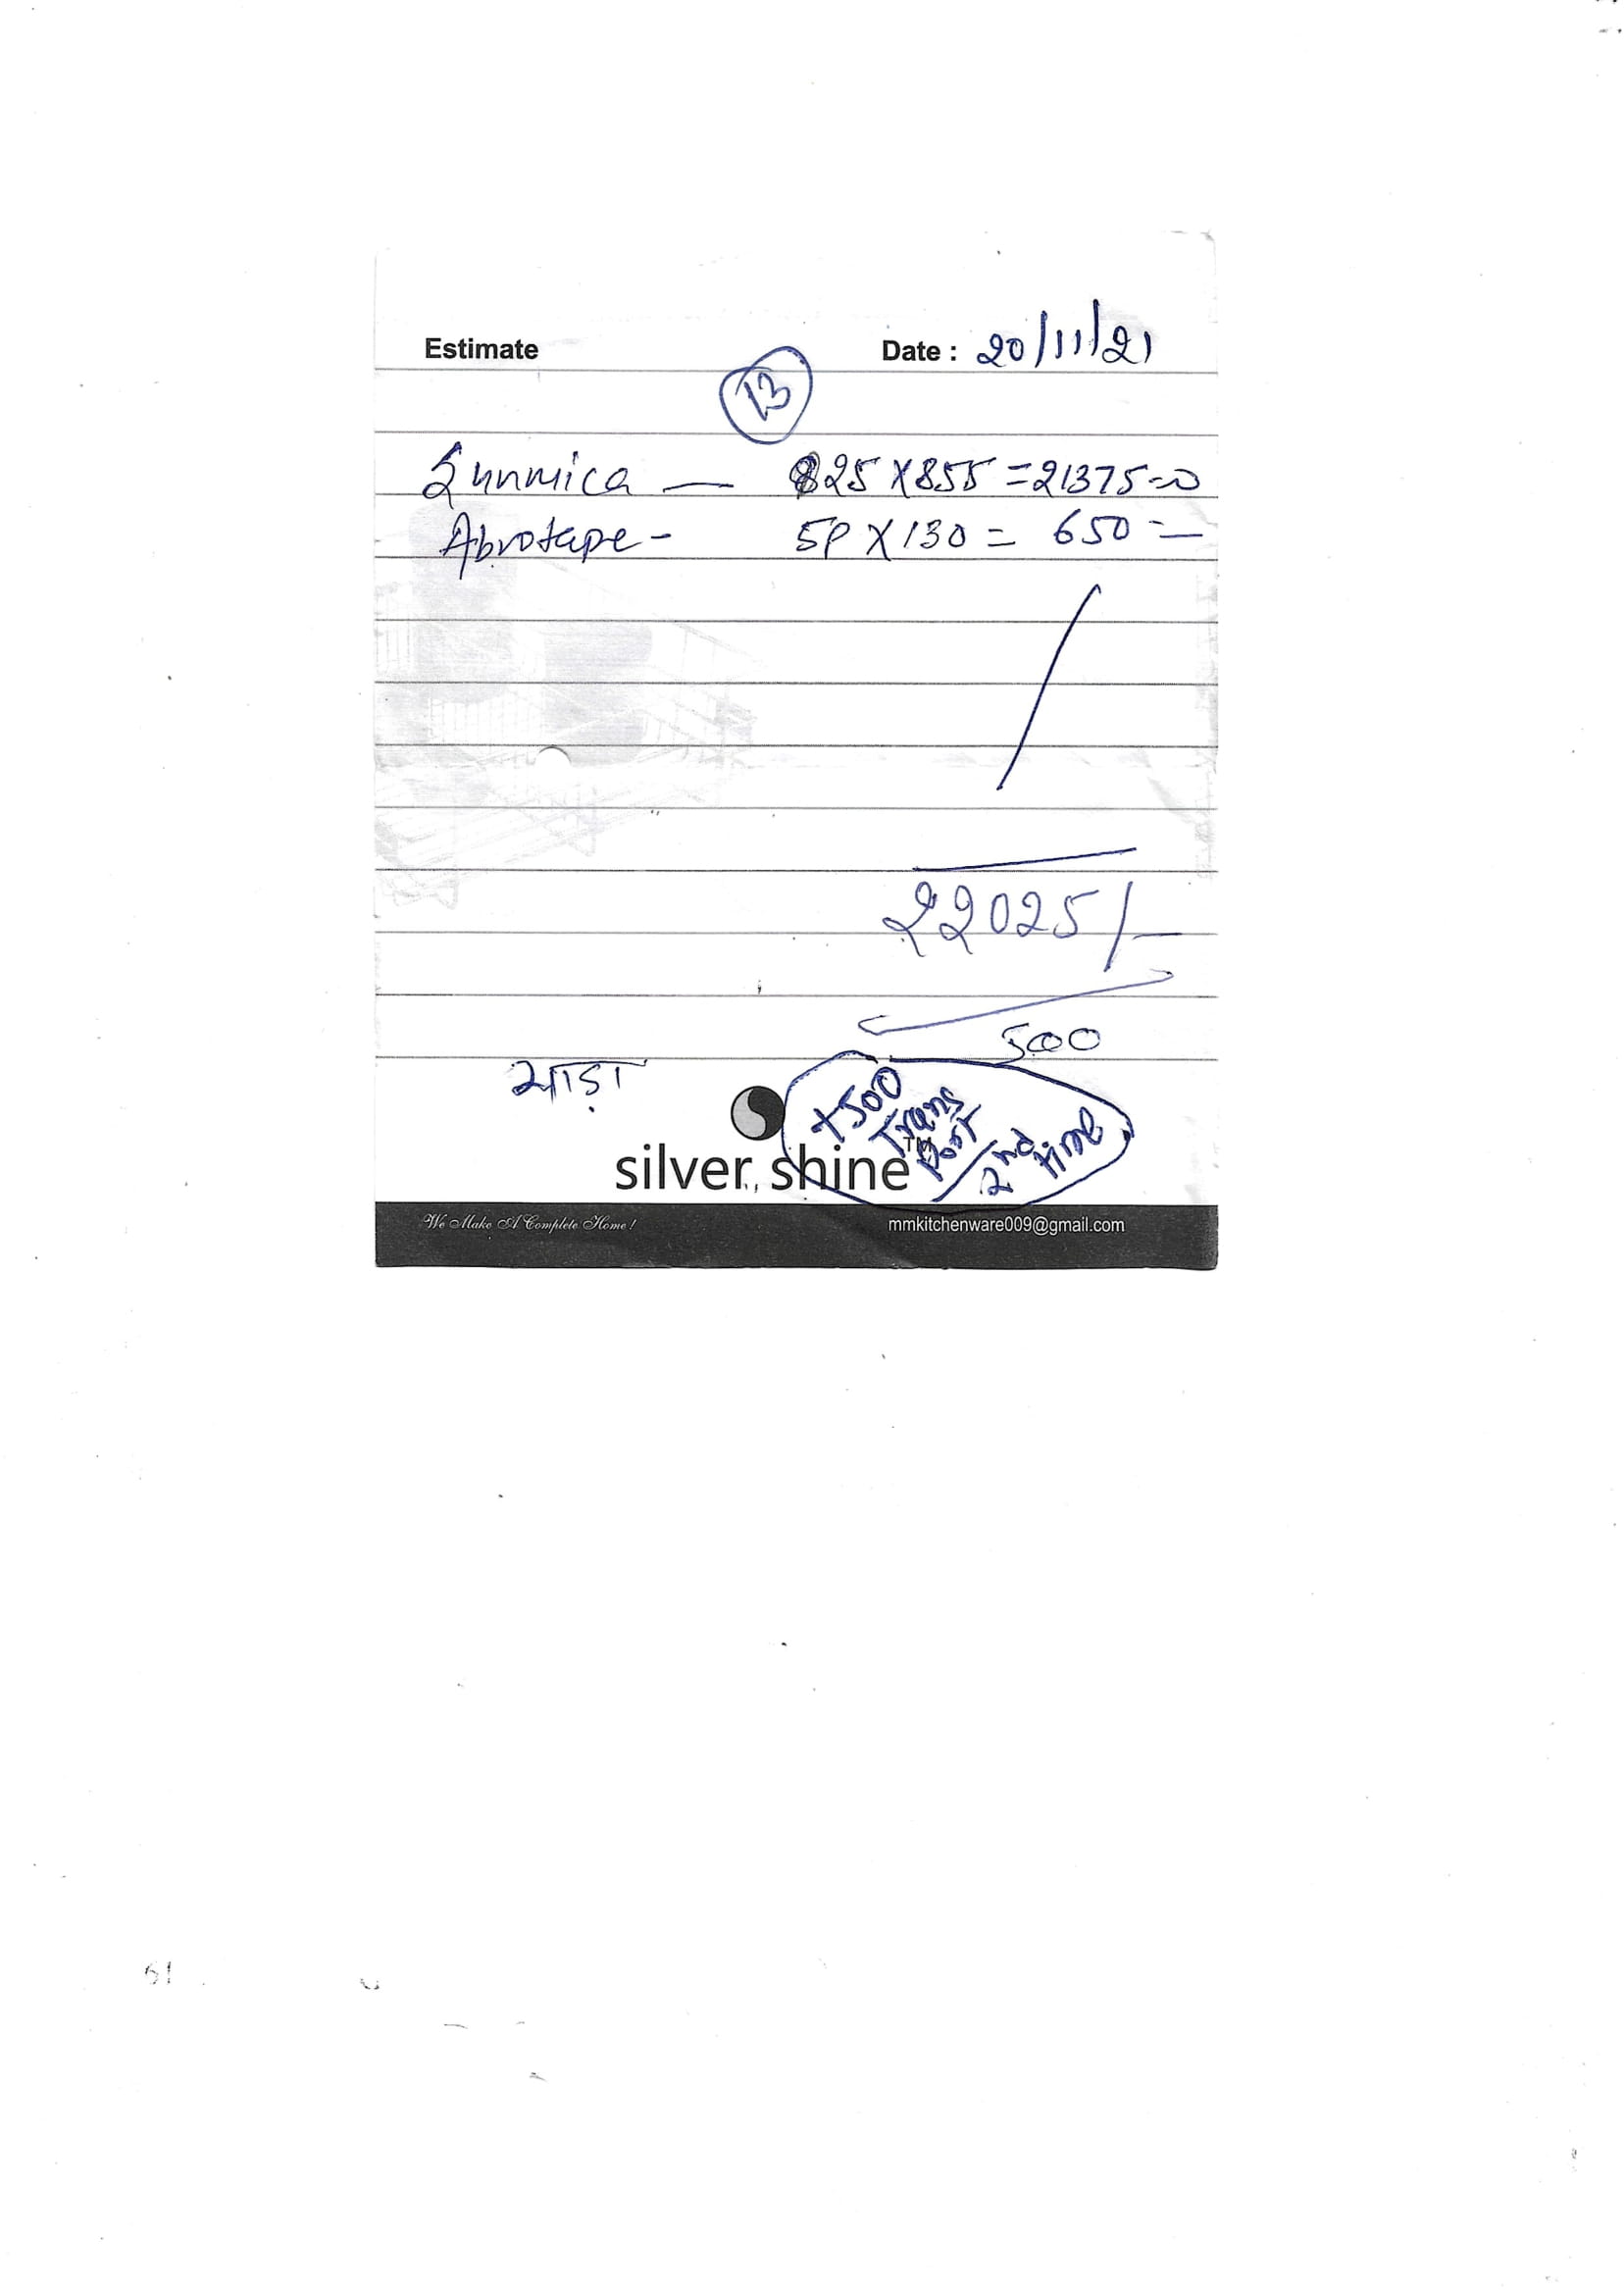 Estimate
Date : 20/11/21
13
Sunmica — 25 X 855 = 21375=0
Abrotape - 5P X 130 = 650 =
22025/-
500
भाड़ा
+500
Trans
Port
2nd
time
silver shine™
We Make A Complete Home !
mmkitchenware009@gmail.com